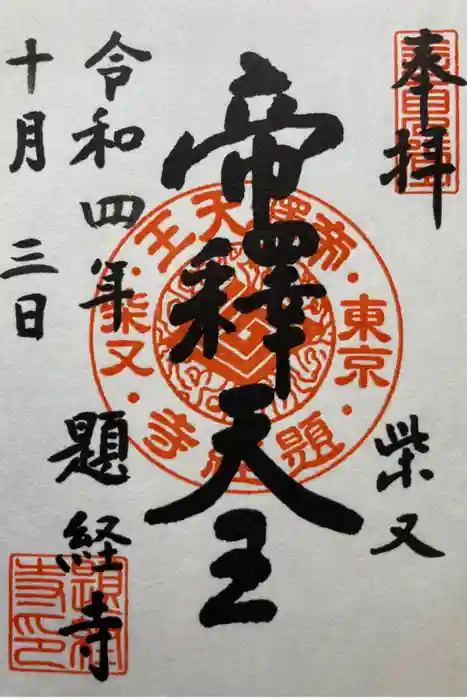 奉拝
柴又
帝釋天王
令和四年
十月三日
題経寺
帝釋天王
東京
柴又
題経寺